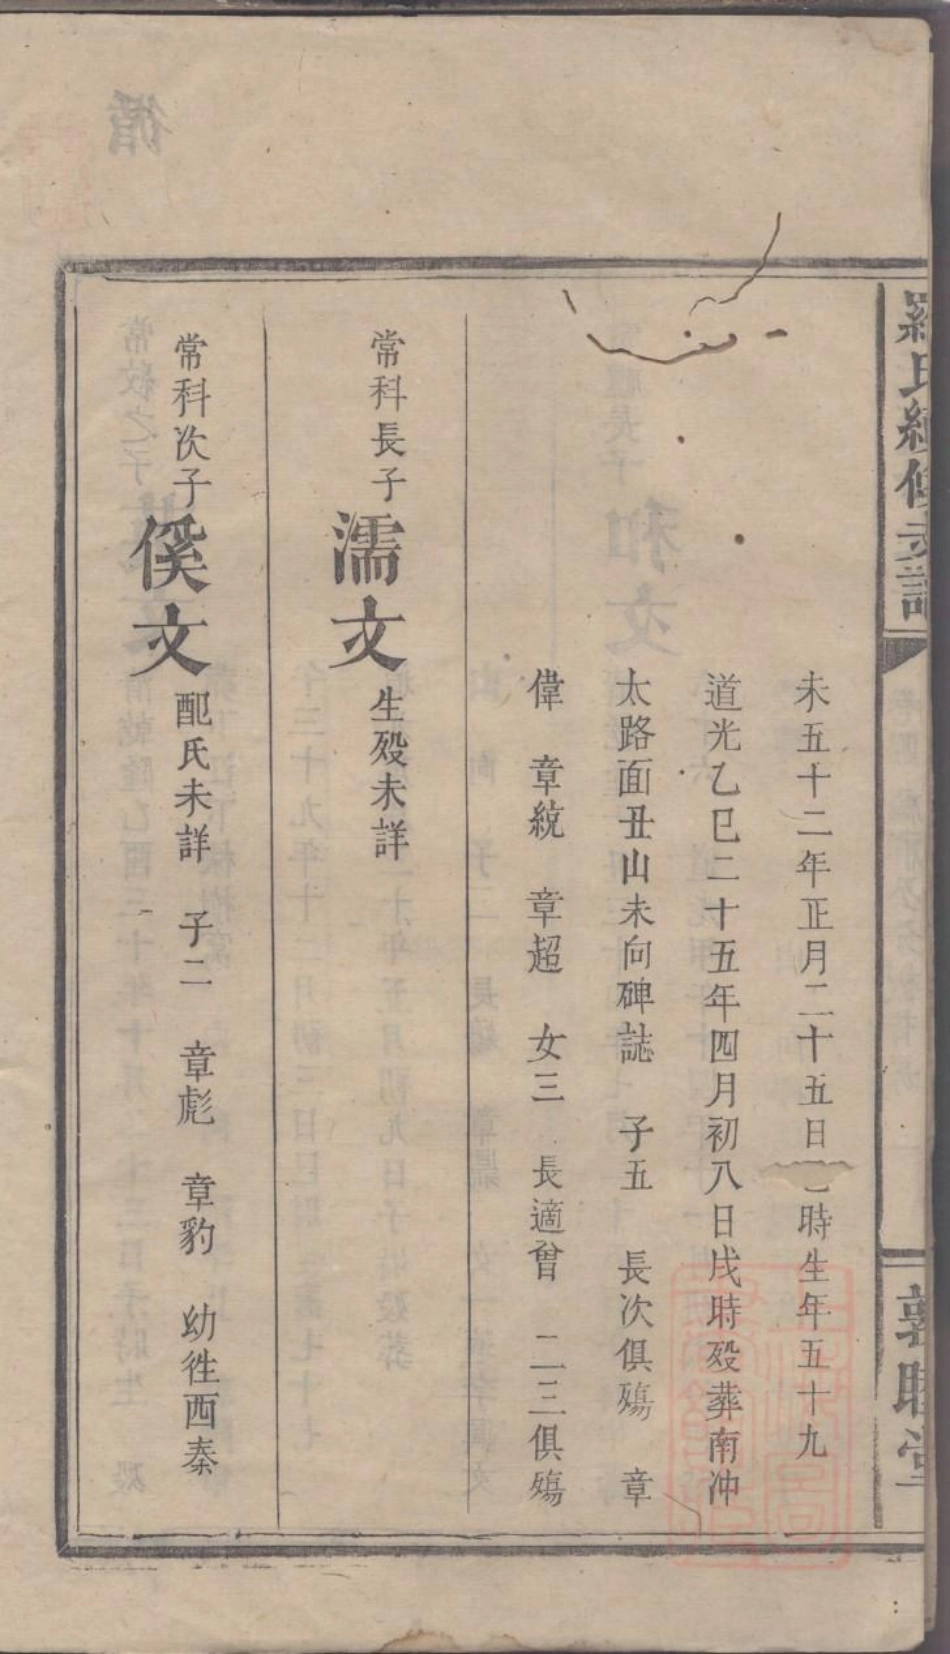 羅氏續修支譜
敦睦堂
未五十二年正月二十五日時生年五十九
道光乙巳二十五年四月初八日戌時歿葬南冲
太路面丑山未向碑誌 子五 長次俱殤 章
偉 章統 章超 女三 長適曾 二三俱殤
常科長子濡文生歿未詳
常科次子傒文配氏未詳 子二 章彪 章豹 幼徃西秦